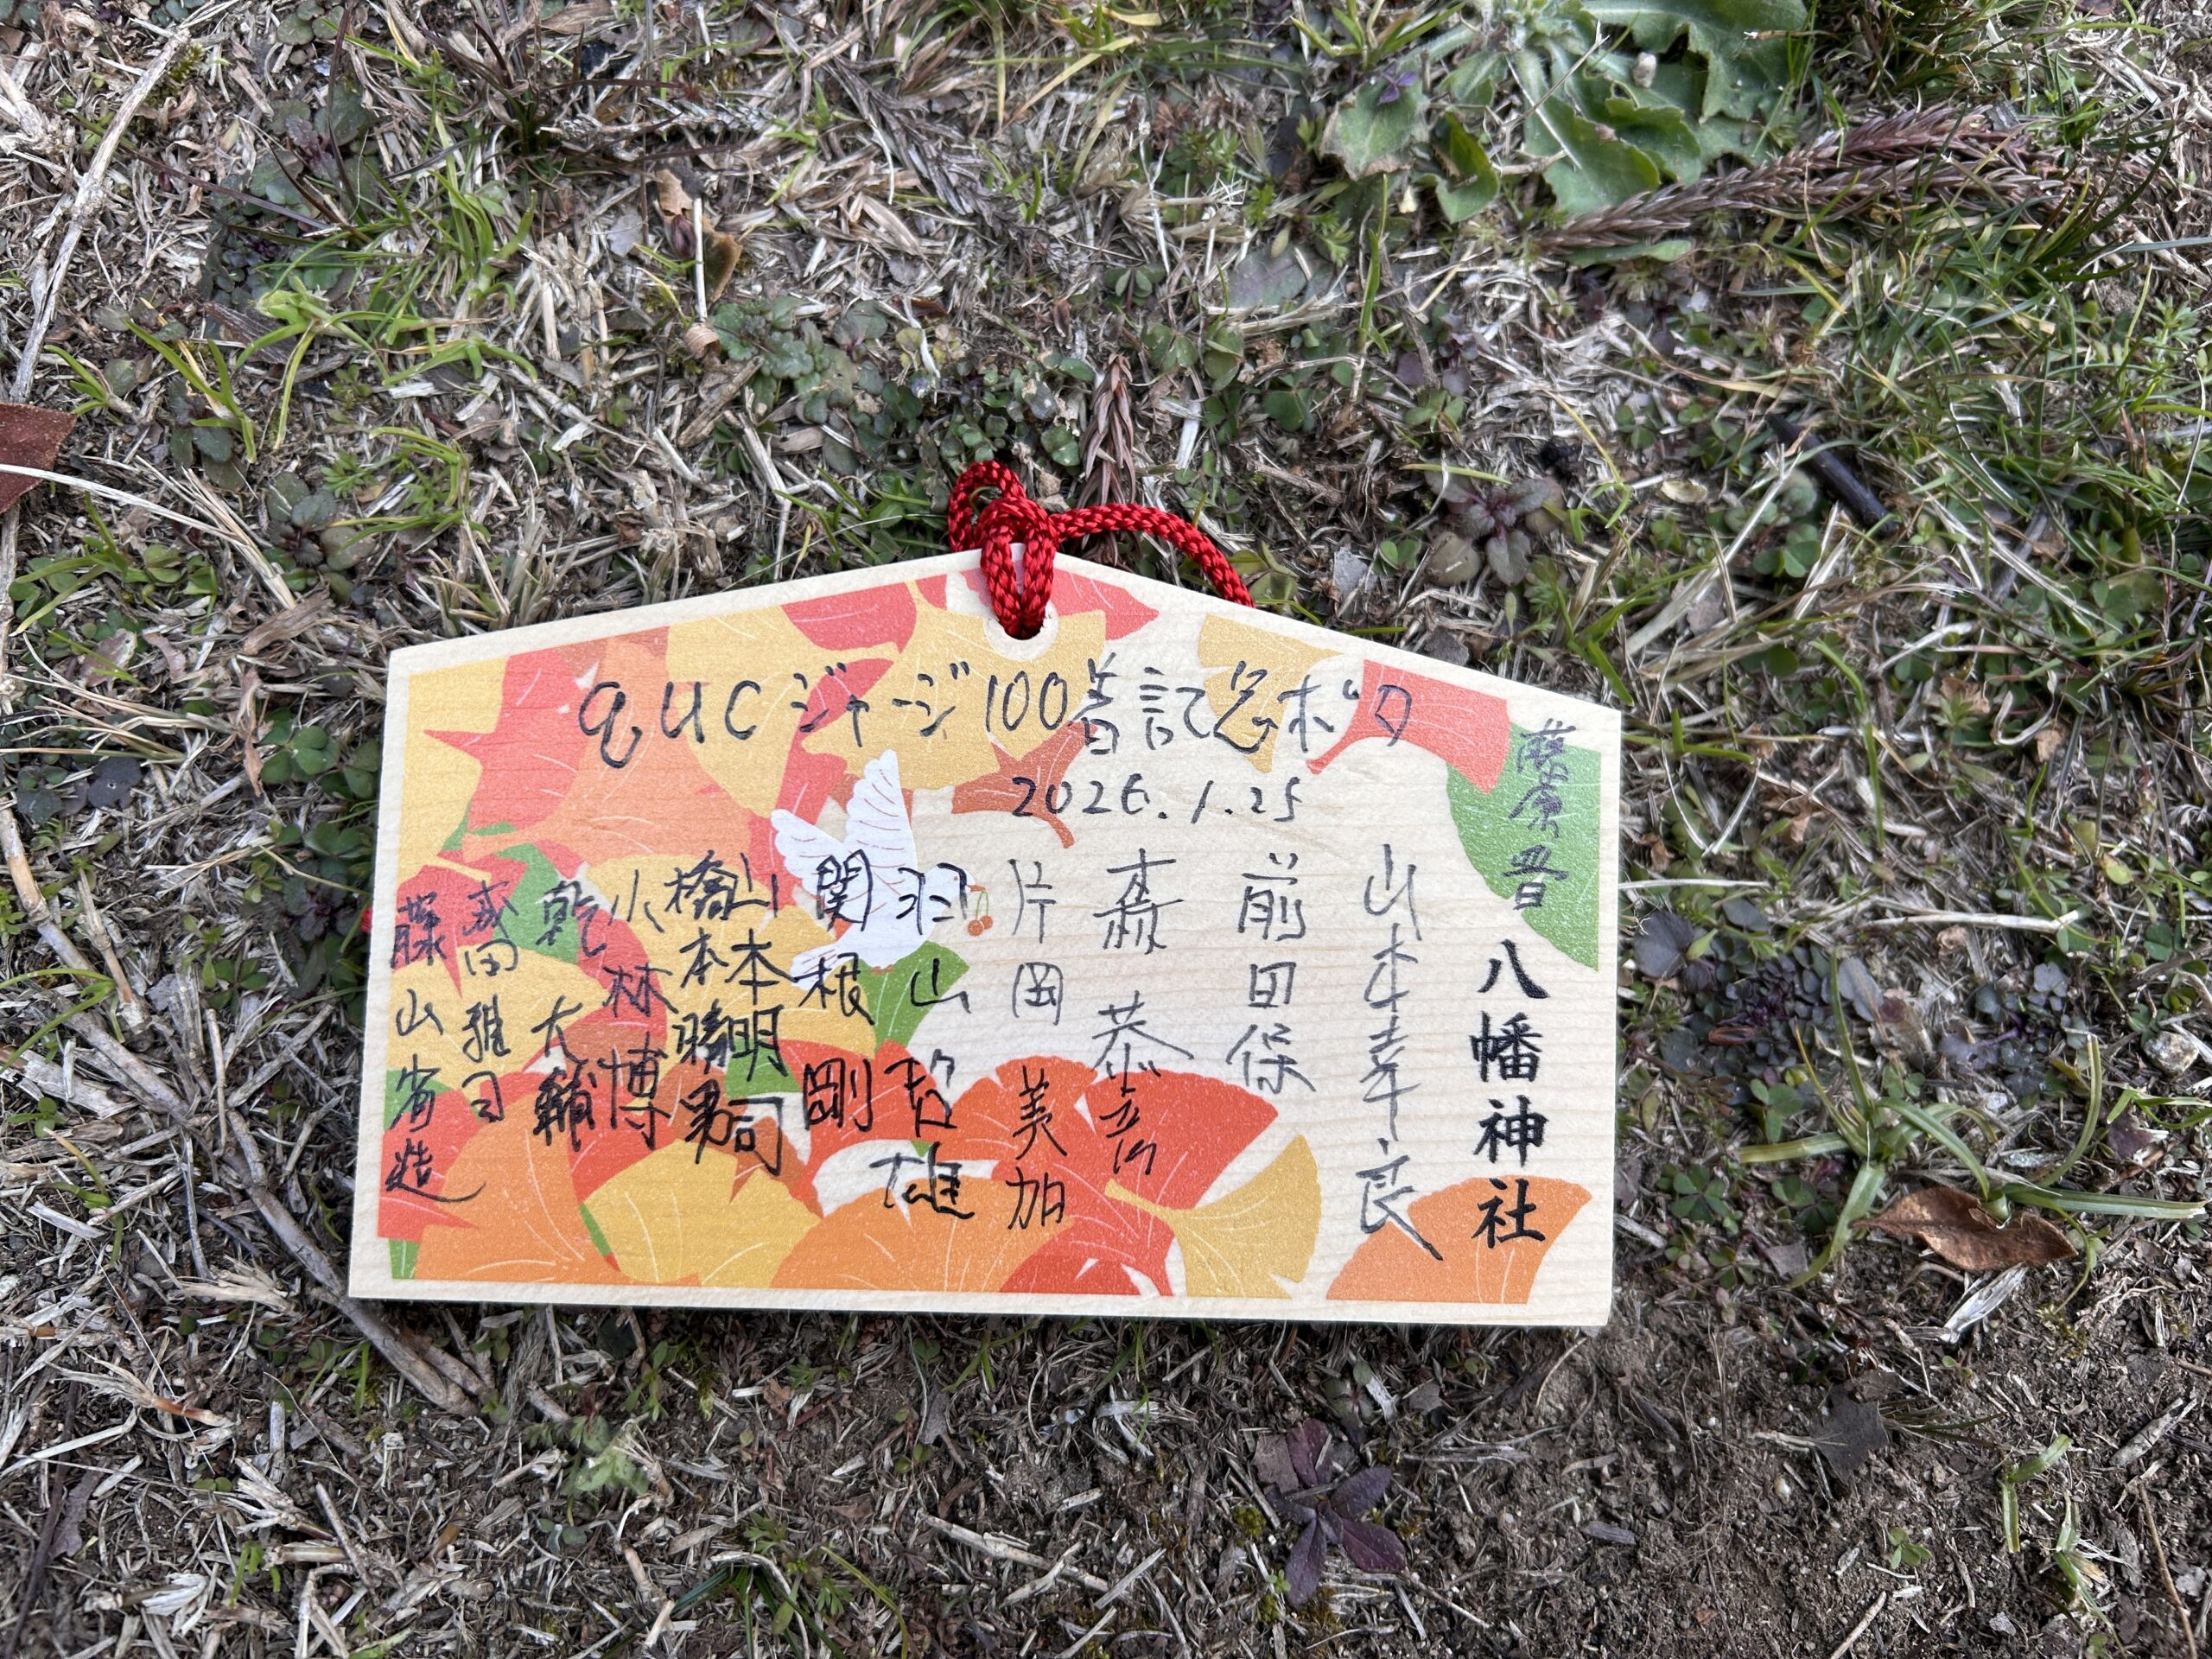 qucジャージ100着記念ポタ
2026.1.25
藤原
八幡神社
山本幸良
前田保
森
片岡美加
羽山哲雄
関根剛
山本明司
橋本勝男
小林博
乾大輔
成田雅司
藤山省造